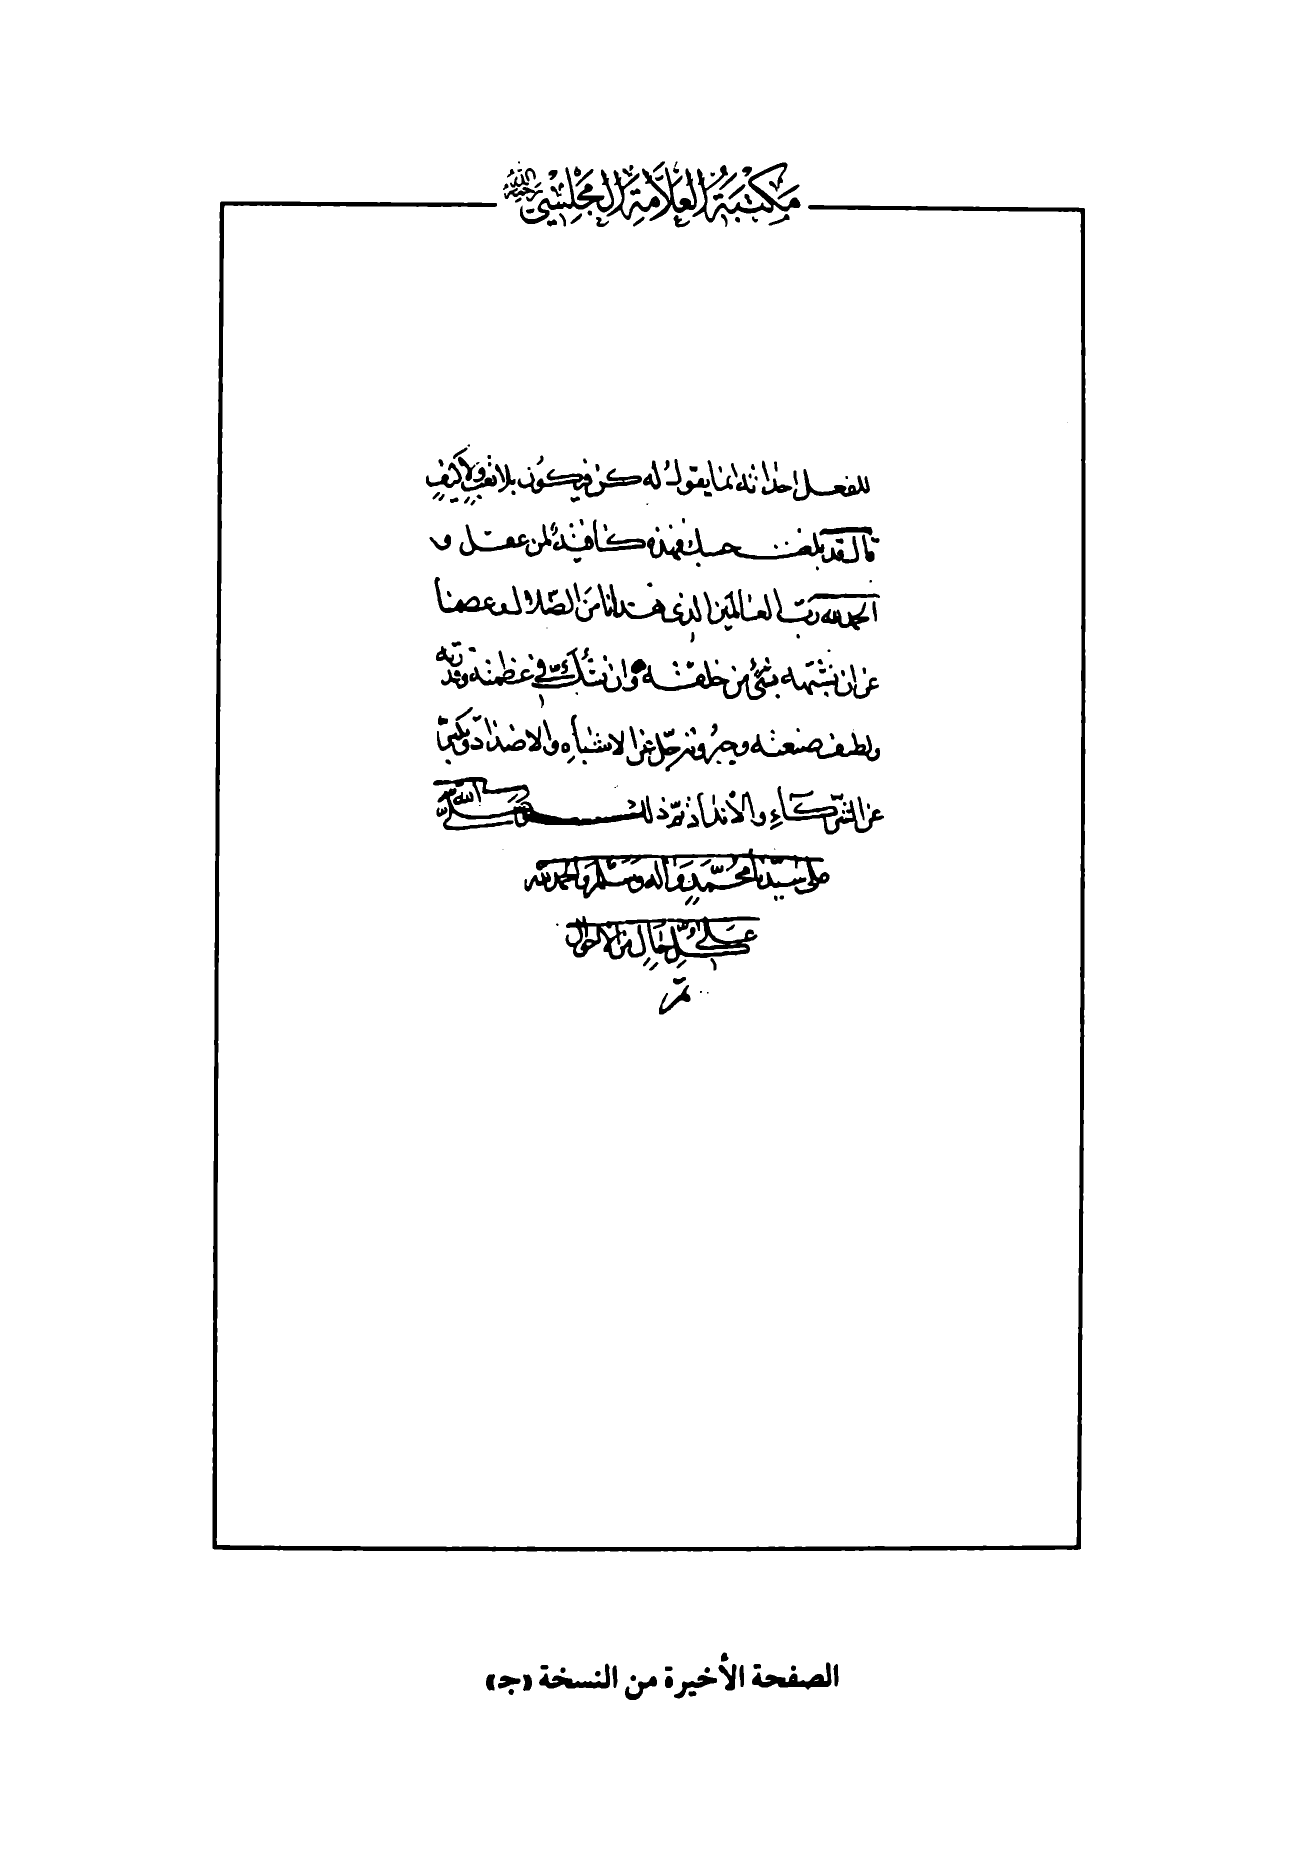 مَكتَبَةُ العَلَّامَةِ المَجلِسِي رحمه الله
للفعل احداثه انما يقول له كن فيكون بلا تعب ولا كيف
قال لقد بلغت حسبك فهذه كافية لمن عقل و
الحمد لله ربّ العالمين الذى هدانا من الضلال وعصمنا
عن ان نشبّهه بشئ من خلقه وان نشكّ فى عظمته وقدرته
ولطف صنعته وجبروته جلّ عن الاشباه والاضداد وتكبّر
عن الشركاء والأنداد تمّ ذلك وصلّى الله
على سيّدنا محمّدٍ وآله وسلم والحمد لله
على كلّ حالٍ من الاحوال
تمّ
الصفحة الأخيرة من النسخة «ج»